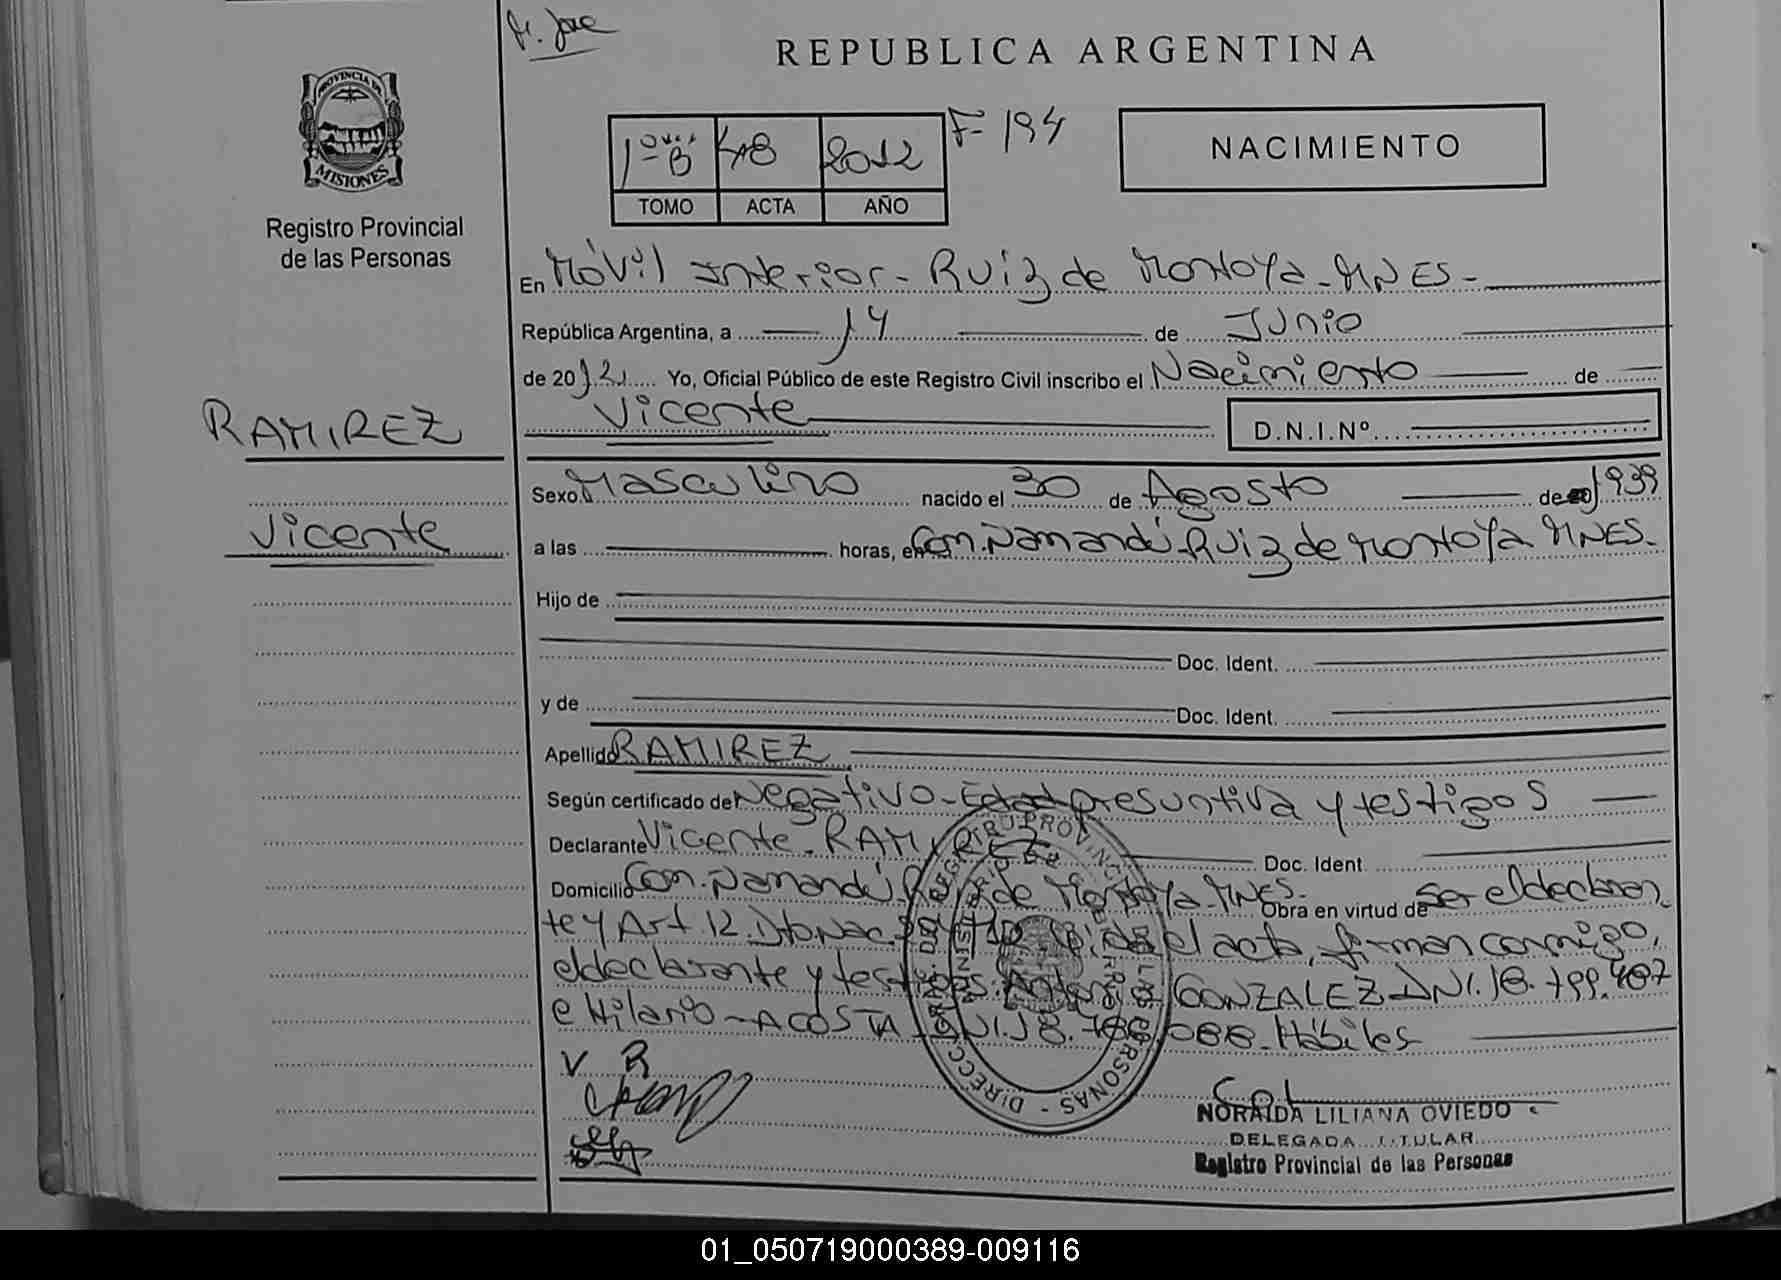 REPUBLICA ARGENTINA
PROVINCIA DE
MISIONES
Registro Provincial
de las Personas
2012 F- 194
TOMO ACTA AÑO
NACIMIENTO
En Móvil Interior - Ruiz de Montoya - MNES -
República Argentina, a 14 de Junio
de 2012 Yo, Oficial Público de este Registro Civil inscribo el Nacimiento de
Vicente
D.N.I.Nº
RAMIREZ
Vicente
Sexo Masculino nacido el 30 de Agosto de 1939
a las horas, en Com. Ñamandú - Ruiz de Montoya MNES.
Hijo de
Doc. Ident.
y de
Doc. Ident.
Apellido RAMIREZ
Según certificado de Negativo - Edad presuntiva y testigos
Declarante Vicente - RAMIREZ Doc. Ident.
Domicilio Com. Ñamandú. Ruiz de Montoya - MNES. Obra en virtud de Ser el declaran
te y Art 12. Dto Nac. el acta, firman conmigo,
el declarante y testigos: GONZALEZ DNI. 18.799.407
e Hilario - ACOSTA DNI. 18. 088. Hábiles
V R
NORAIDA LILIANA OVIEDO
DELEGADA TITULAR
Registro Provincial de las Personas
01_050719000389-009116